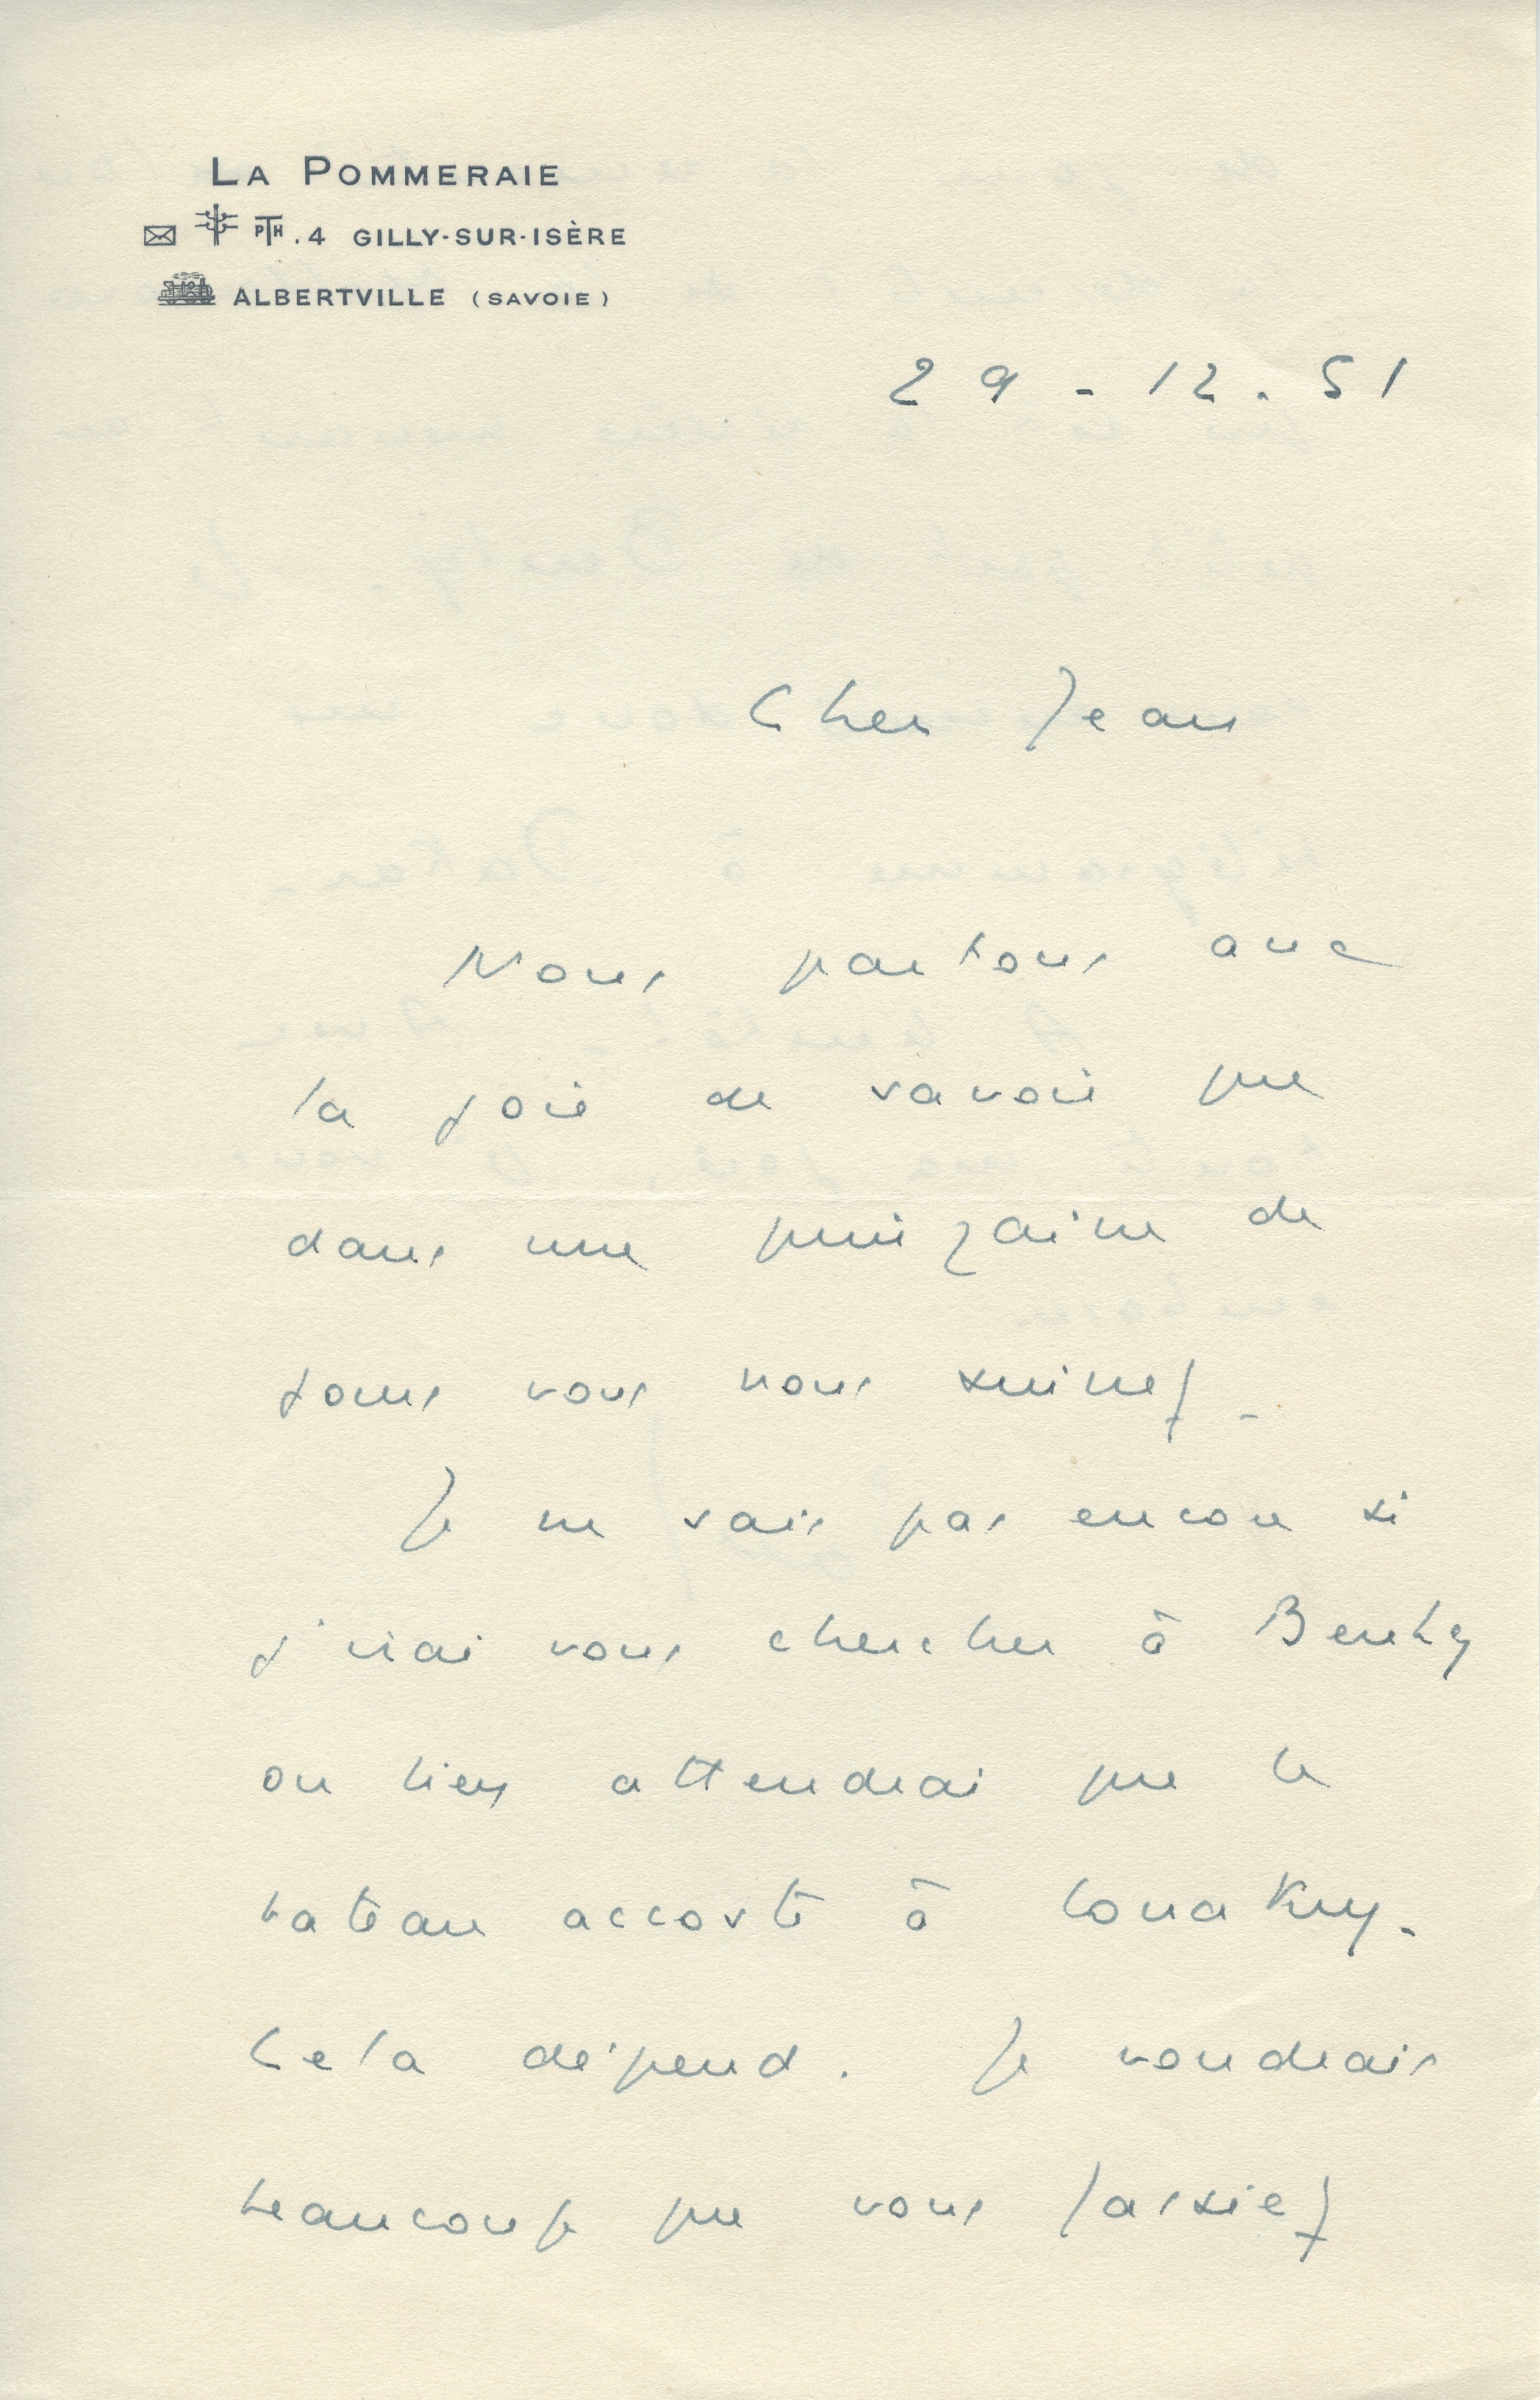 LA POMMERAIE
PTH.4 GILLY-SUR-ISÈRE
ALBERTVILLE (SAVOIE)
29-12.51
Cher Jean
Nous partons avec
la joie de savoir que
dans une quinzaine de
jours vous nous suivrez-
Je ne sais pas encore si
j'irai vous chercher à Benty
ou bien attendrai que le
bateau accoste à Conakry.
Cela dépend. Je voudrais
beaucoup que vous fassiez